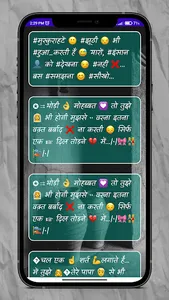 3:39 PM
#मुस्कुराहटे 😊 #झूठी 👋 भी
#हुआ..करती हैं 😍 यारो, #इंसान
👤 को #देखना 😊 #नहीं ❌...
बस #समझना 😊 #सीखो...
थोड़ी 👌 मोहब्बत 💟 तो तुझे
भी होगी मुझसे - वरना इतना
वक्त बर्बाद ❌ ना करती 😏 सिर्फ
एक दिल तोडने 💔 मे...|-/|
|-/|-|
थोड़ी 👌 मोहब्बत 💟 तो तुझे
भी होगी मुझसे - वरना इतना
वक्त बर्बाद ❌ ना करती 😏 सिर्फ
एक दिल तोडने 💔 मे...|-/|
|-/|-|
चल एक ☝ शर्त लगाते हैं...
मैं तुझे तेरे पापा भी